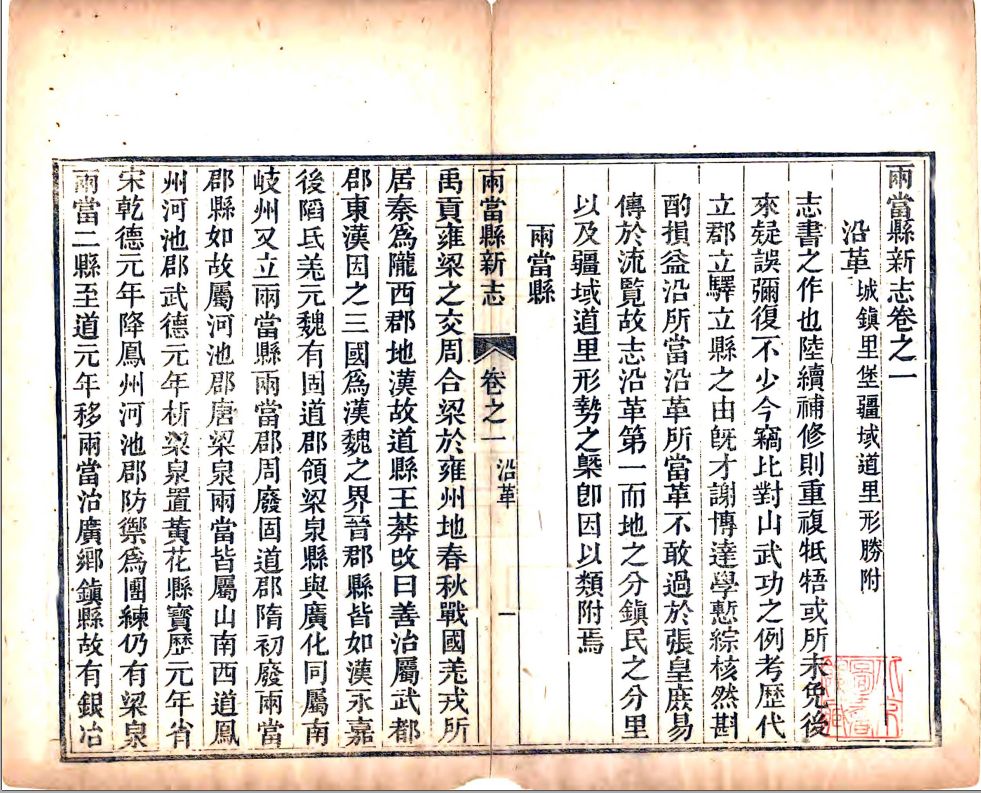 兩當縣新志卷之一
沿革城鎮里堡疆域道里形勝附
志書之作也陸續補修則重複牴牾或所未免後
來疑誤彌復不少今竊比對山武功之例考歷代
立郡立驛立縣之由旣才謝博達學慙綜核然斟
酌損益沿所當沿革所當革不敢過於張皇庶易
傳於流覽故志沿革第一而地之分鎮民之分里
以及疆域道里形勢之槩卽因以類附焉
兩當縣
兩當縣新志 卷之一 沿革 一
禹貢雍梁之交周合梁於雍州地春秋戰國羌戎所
居秦爲隴西郡地漢故道縣王莽改曰善治屬武都
郡東漢因之三國爲漢魏之界晉郡縣皆如漢永嘉
後䧟氐羌元魏有固道郡領梁泉縣與廣化同屬南
岐州又立兩當縣兩當郡周廢固道郡隋初廢兩當
郡縣如故屬河池郡唐梁泉兩當皆屬山南西道鳳
州河池郡武德元年析梁泉置黃花縣寶歷元年省
宋乾德元年降鳳州河池郡防禦爲團練仍有梁泉
兩當二縣至道元年移兩當治廣鄉鎮縣故有銀冶